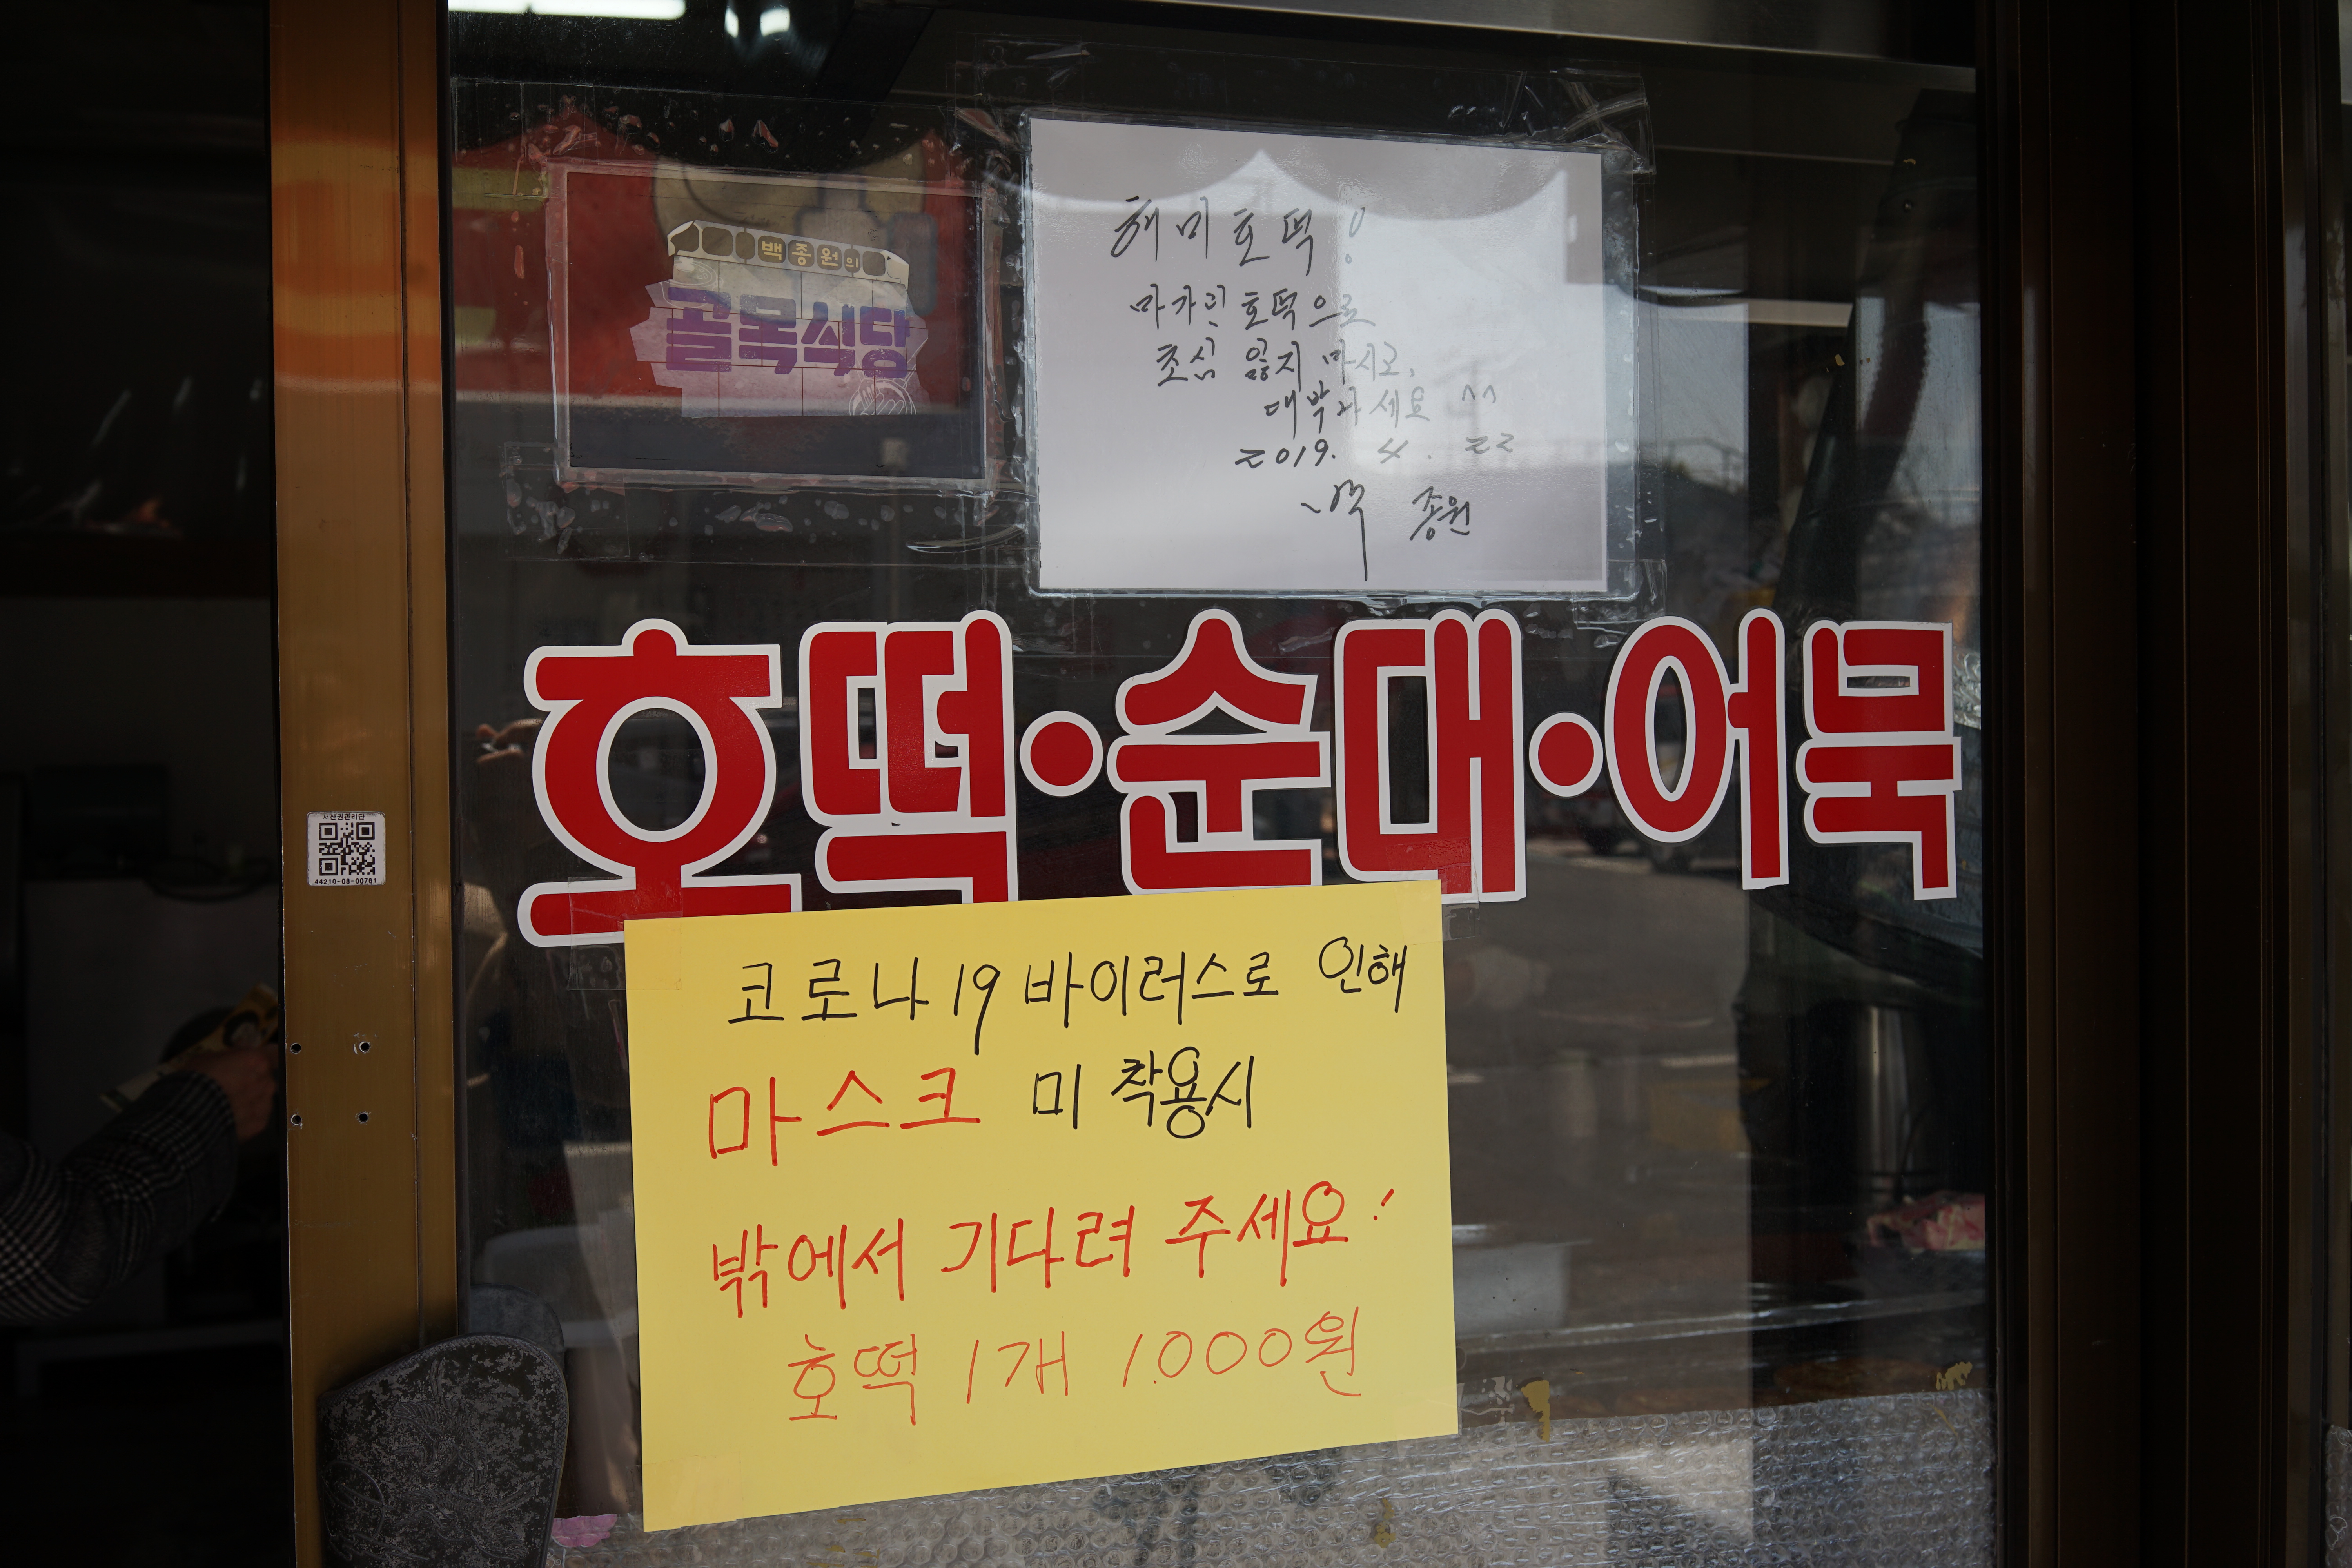 백종원의
골목식당
해미호떡!
마가린 호떡으로
초심 잃지 마시고,
대박나세요 ^^
2019. 4. 22
백종원
호떡·순대·어묵
서산권관리단
44210-08-00761
코로나19 바이러스로 인해
마스크 미 착용시
밖에서 기다려 주세요!
호떡 1개 1.000원